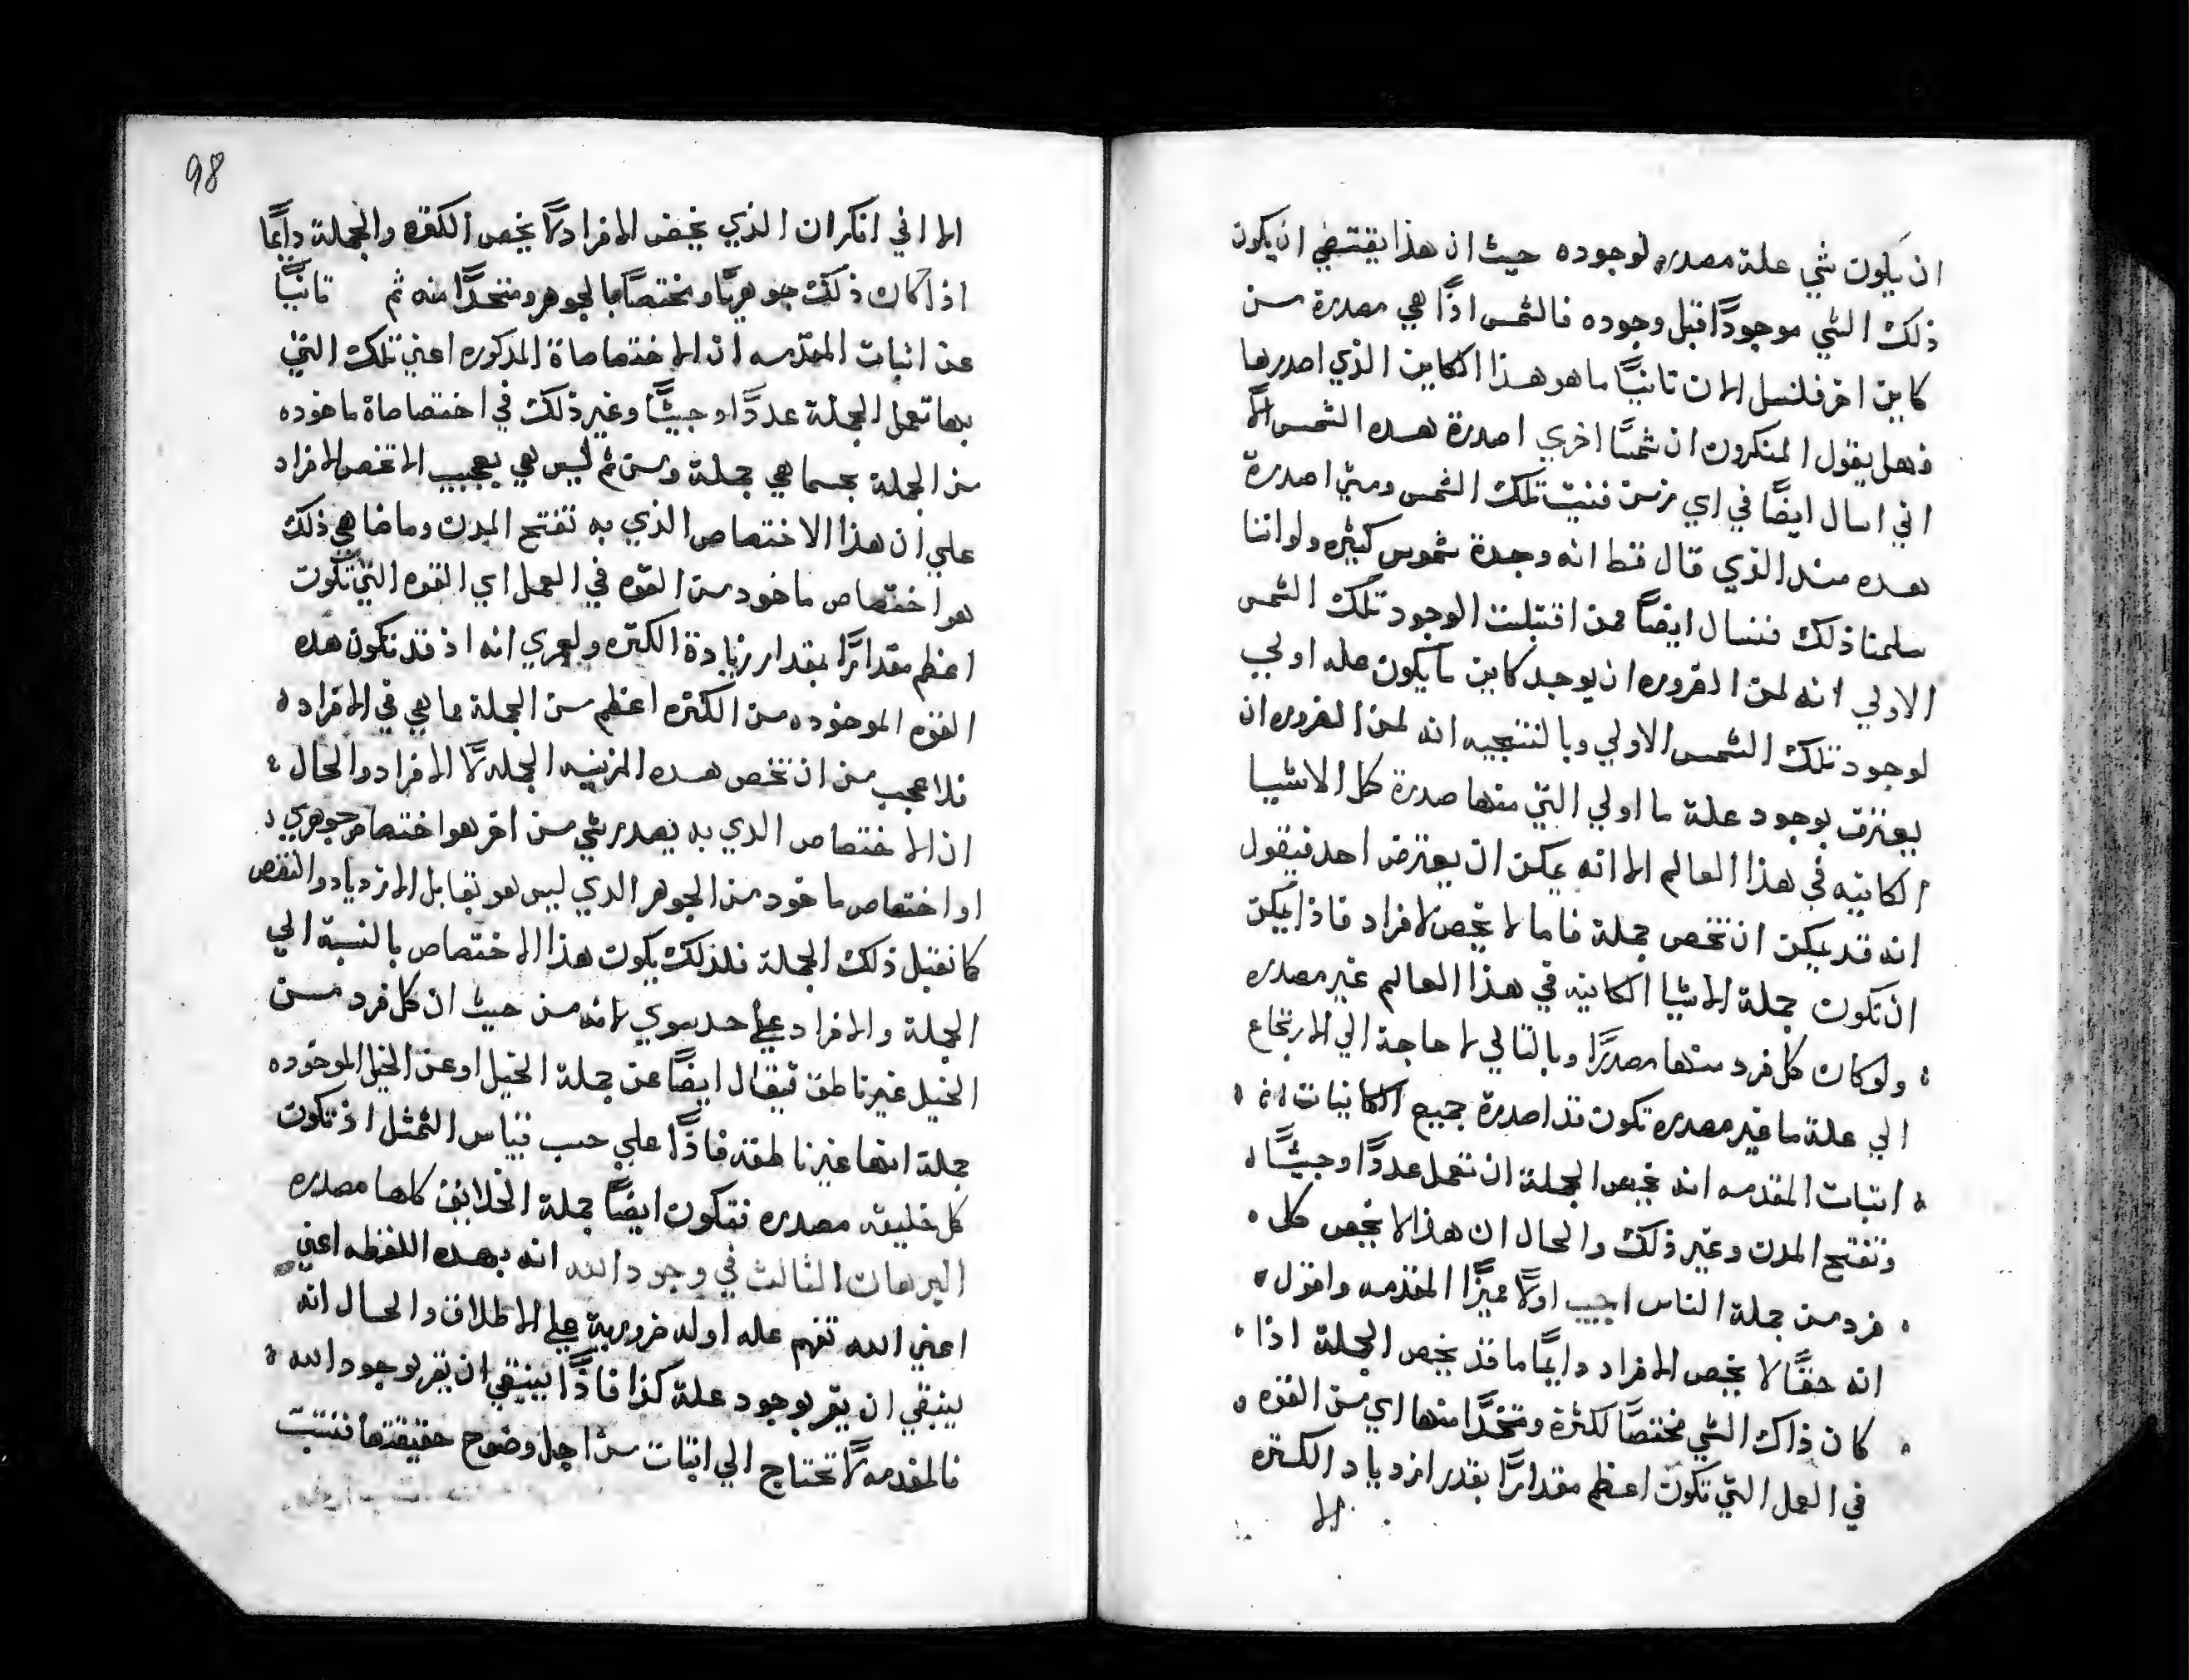 ان يكون شي علة مصدره لوجوده حيث ان هذا يقتضي ان يكون
ذلك الشي موجودًا قبل وجوده فالشمس اذًا هي مصدرة من
كاين اخر فلنسل الان تانيًا ما هو هذا الكاين الذي اصدرها
فهل يقول المنكرون ان شمسًا اخري اصدرة هده الشمس الا
اني اسال ايضًا في اي زمن فنيت تلك الشمس ومتي اصدرة
هده منذا الذي قال قط انه وجدة شموس كثيره ولو اننا
سلمنا ذلك فنسال ايضًا ممن اقتبلت الوجود تلك الشمس
الاولي انه لمن الضروره ان يوجد كاين ما يكون عله اولي
لوجود تلك الشمس الاولي وبالنتيجيه انه لمن الضروره ان
يعترف بوجود علة ما اولي التي منها صدرة كل الاشيا
الكاينه في هذا العالم الا انه يمكن ان يعترض احد فيقول
انه قد يمكن ان تخص جملة فاما لا يخص لافراد فاذا يمكن
ان تكون جملة الاشيا الكاينه في هذا العالم غير مصدره
ولو كان كل فرد منها مصدرًا وبالتالي لا حاجة الي الارتجاع
الي علة ما غير مصدره تكون قد اصدرة جميع الكاينات
اتبات المقدمه انه يخص الجملة ان تعمل عددًا وجيشًا
وتفتح المدن وغير ذلك والحال ان هذا لا يخص كل
فرد من جملة الناس اجيب اولًا مميزًا المقدمه واقول
انه حقًا لا يخص الافراد دايمًا ما قد يخص الجملة اذا
كان ذاك الشي مختصًا لكثرة ومتخدًا منها اي من القوه
في العمل التي تكون اعظم مقدارًا بقدر ازدياد الكتره
الا
98
الا اني انكر ان الذي يخص الافراد لا يخص الكتره والجملة دايمًا
اذا كان ذلك جوهريًا ومختصًا بالجوهر ومتخدًا منه ثم تانيًا
عن اثبات المقدمه ان الاختصاصاة المذكوره اعني تلك التي
بها تعمل الجملة عددًا وجيشًا وغير ذلك في اختصاصاة ماخوده
من الجملة بحسما هي جملة ومن ثم ليس هي بعجيب الا تخص الافراد
علي ان هذا الاختصاص الذي به تفتح المدن وما ضاهي ذلك
هو اختصاص ماخود من القوه في العمل اي القوه التي تكون
اعظم مقدارًا بمقدار زيادة الكتره ولعمري انه اذ قد تكون هده
القوه الموخوده من الكتره اعظم من الجملة مما هي في الافراد
فلا عجب من ان تخص هده المزييه الجمله لا الافراد والحال
ان الاختصاص الدي به يصدر شي من اخر هو اختصاص جوهري
او اختصاص ماخود من الجوهر الدي ليس هو بقابل الازدياد والنقص
كما تقبل ذلك الجملة فلذلك يكون هذا الاختصاص بالنسبة الي
الجملة والافراد علي حد سوي لانه من حيث ان كل فرد من
الخيل غير ناطق فيقال ايضًا عن جملة الخيل او عن الخيل الموخوده
جملة انها غير ناطقه فاذًا علي حسب قياس التمثل اذ تكون
كل خليقه مصدره فتكون ايضًا جملة الخلايق كلها مصدره
البرهان الثالث في وجود الله انه بهده اللفظه اعني
اعني الله تفهم عله اوله ضرورية علي الاطلاق والحال انه
ينبغي ان يقر بوجود علة كذا فاذًا ينبغي ان يقر بوجود الله
فالمقدمه لا تحتاج الي اتبات من اجل وضوح حقيقتها فنتبت